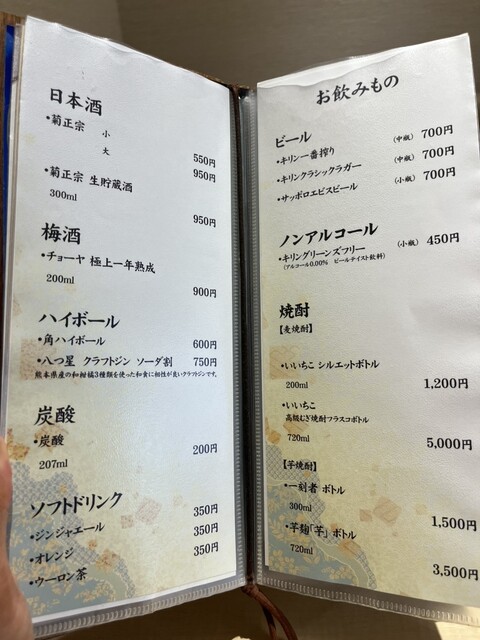 日本酒
・菊正宗 小 550円
大 950円
・菊正宗 生貯蔵酒
300ml 950円
梅酒
・チョーヤ 極上一年熟成
200ml 900円
ハイボール
・角ハイボール 600円
・八つ星 クラフトジン ソーダ割 750円
熊本県産の和柑橘3種類を使った和食に相性が良いクラフトジンです。
炭酸
・炭酸 200円
207ml
ソフトドリンク
・ジンジャエール 350円
・オレンジ 350円
・ウーロン茶 350円
お飲みもの
ビール
・キリン一番搾り (中瓶) 700円
・キリンクラシックラガー (中瓶) 700円
・サッポロエビスビール (小瓶) 700円
ノンアルコール
・キリングリーンズフリー (小瓶) 450円
(アルコール0.00% ビールテイスト飲料)
焼酎
【麦焼酎】
・いいちこ シルエットボトル
200ml 1,200円
・いいちこ
高級むぎ焼酎フラスコボトル
720ml 5,000円
【芋焼酎】
・一刻者 ボトル
300ml 1,500円
・芋麹「芋」ボトル
720ml 3,500円